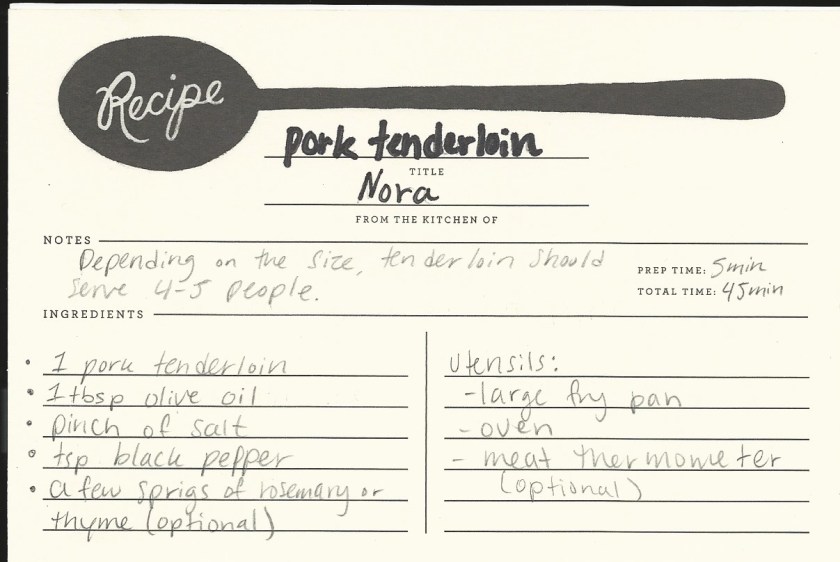 Recipe
pork tenderloin
TITLE
Nora
FROM THE KITCHEN OF
NOTES
Depending on the size, tenderloin should
serve 4-5 people.
PREP TIME: 5min
TOTAL TIME: 45min
INGREDIENTS
• 1 pork tenderloin
• 1 tbsp olive oil
• pinch of salt
• tsp black pepper
• a few sprigs of rosemary or
thyme (optional)
Utensils:
- large fry pan
- oven
- meat thermometer
(optional)